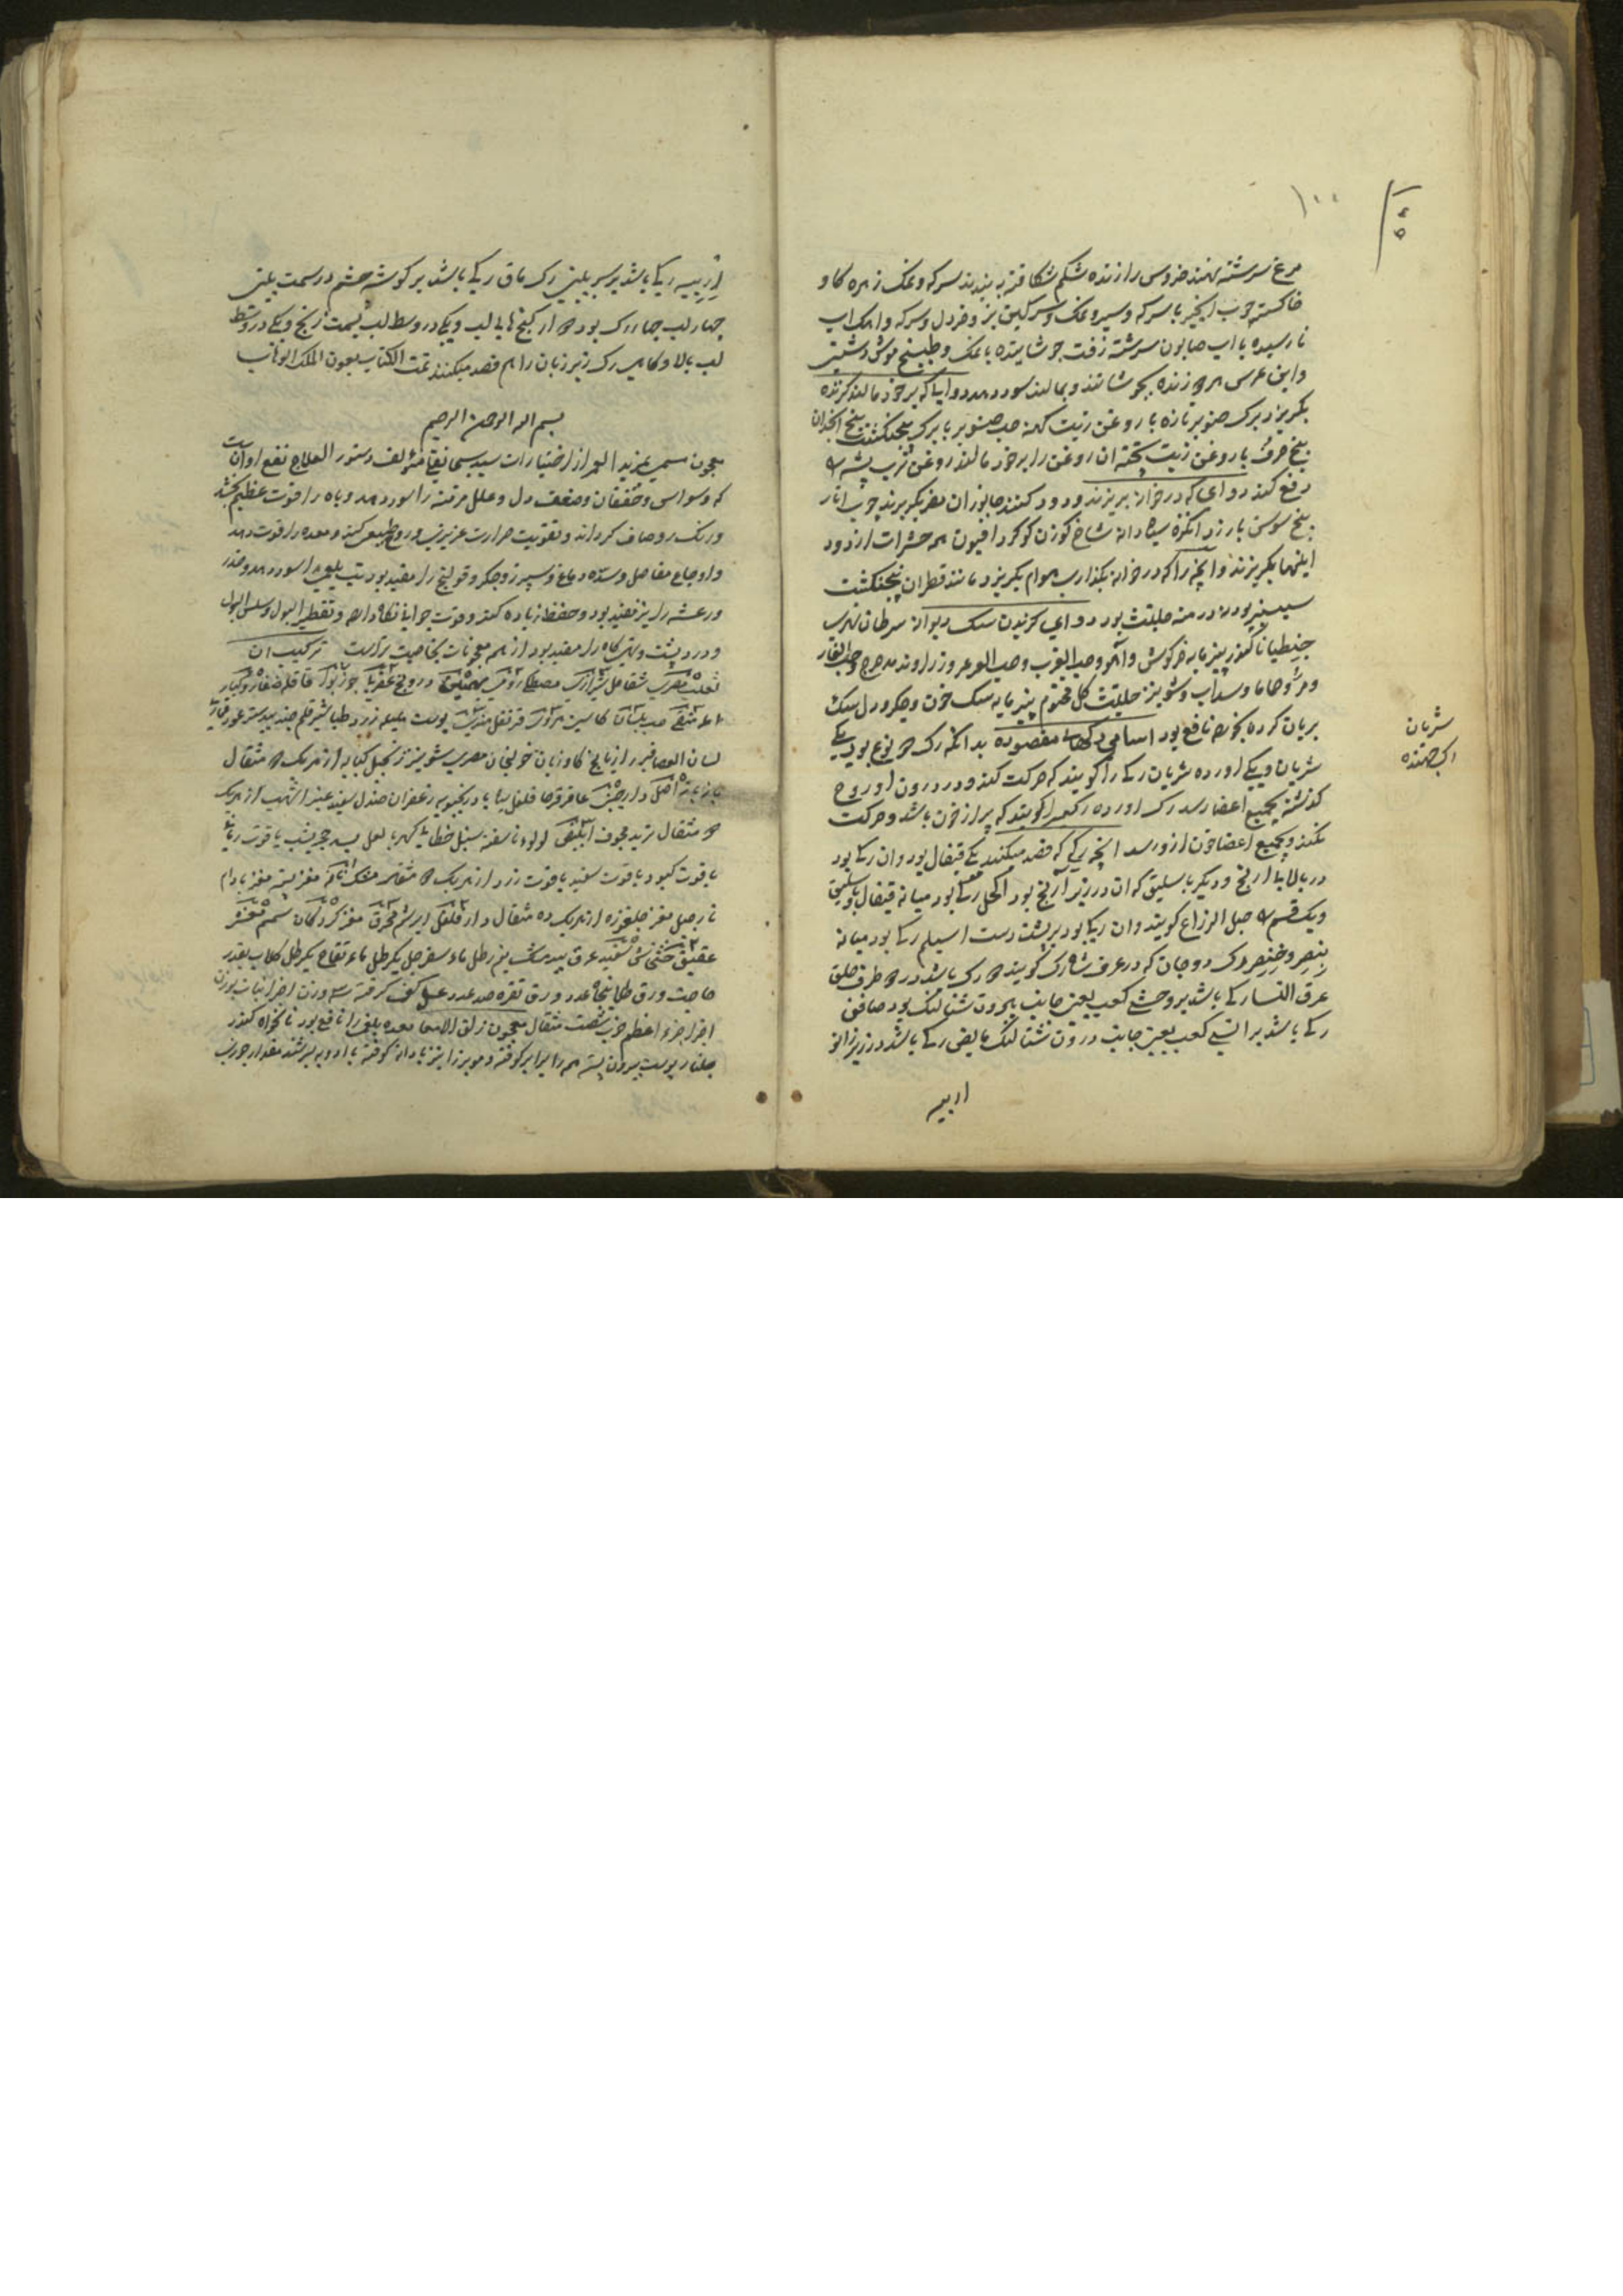 ۱۰۰
مرغ سرشته نهند خروس را زنده شکم شکافته به بندند سرکه و نمک زهره کاو
خاکستر چوب انجیر با سرکه و سیر و نمک و سرکین بز و خردل و سرکه و اهک اب
نارسیده با اب صابون سرشته زفت جوشانیده با نمک و طبیخ موش دشتی
و ابن عرس هر دو زنده بجوشانند و بمالند سود دهد دوایی که بر خود مالند کزنده
بکریزد برک صنوبر تازه با روغن زیت کهنه حب صنوبر با برک پنجنکشت بیخ انجدان
بیخ حرف با روغن زیت پخته ان روغن را بر خود مالند روغن ترب پشه را
دفع کند دوای که در خانه بریزند و دود کنند جانوران مضر بکریزند چوب انار
بیخ سوسن بارزد انکزه سیاه دانه شاخ کوزن کوکرد افیون همه حشرات از دود
اینها بکریزند و انچه را که در خانه بکذارند هوام بکریزد مانند قطران پنجنکشت
سیسنبر پودنه درمنه حلتیت بود دوای کزیدن سک دیوانه سرطان نهری
جنطیانا کندر پنیر مایه خرکوش و آهو و حب الغرب و حب العرعر و زراوند مدحرج و حب الغار
و مر و حاما و سداب و شونیز حلتیت کل مختوم پنیر مایه سک خون و جکر و دل سک
بریان کرده بخورند نافع بود اسامی رکهای مفصوده بدانکه رک دو نوع بود یکی
شریان و یکی اورده شریان رکی را کویند که حرکت کند و در درون او روح
کذشته بجمیع اعضا رسد رک اورده رکی را کویند که پر از خون باشد و حرکت
نکند و بجمیع اعضا خون ازو رسد انچه رکی که فصد میکنند یکی قیفال بود و ان رکی بود
در بالا یا ارنج و دیکر باسلیق که ان در زیر آرنج بود اکحل رکی بود میانه قیفال و باسلیق
و یک قسم را حبل الزراع کویند و ان رکی بود بر پشت دست اسیلم رکی بود میانه
بنصر و خنصر رک دوجان که در عرف شاه رک کویند دو رک باشد در دو طرف حلق
عرق النسا رکی باشد بر وحشی کعب یعنی جانب بیرون شتالنک بود صافن
رکی باشد بر انسی کعب یعنی جانب درون شتالنک مابض رکی باشد در زیر زانو
اربیه
شریان
رک جهنده
اربیه رکی باشد بر سر بینی رک ماق رکی باشد بر کوشه چشم در سمت بینی
چهار لب چهار رک بود دو از کنج های لب و یکی در وسط لب بسمت زنخ و یکی در وسط
لب بالا و کاهی رک زیر زبان را هم فصد میکنند تمت الکتاب بعون الملک الوهاب
بسم الله الرحمن الرحیم
معجون مسمی بمزید العمر از اختیارات سید مؤلف دستور العلاج نفع او انست
که وسواس و خفقان و ضعف دل و علل مزمنه را سود دهد و باه را قوت عظیم بخشد
و رنک رو صاف کرداند و تقویت حرارت عزیزی و روح طبیعی کند و معده را قوت دهد
و اوجاع مفاصل و سده دماغ و سپرز و جکر و قولنج را مفید بود تب بلغمی را سود دهد و خدر
و رعشه را نیز مفید بود و حفظ زیاده کند و قوت جوانی نکاه دارد و تقطیر البول و سلس البول
و درد پشت و تهیکاه را مفید بود از همه معجونات بخاصیت تر است ترکیب ان
ثعلب مصری شقاقل مصطکی رومی بهمنین درونج عقربی جوز بوا قاقله صغار و کبار
حب بلسان قرنفل پوست هلیله زرد طباشیر قلم جندبیدستر عود قماری
لسان العصافیر رازیانج کاو زبان خولنجان مصری شونیز زنجبیل کبابه از هر یک دو مثقال
دارچینی عاقرقرحا فلفل سیاه بادرنجبویه زعفران صندل سفید عنبر اشهب از هر یک
دو مثقال تربد مجوف لولو ناسفته سنبل خطایی کهربا لعل بسد حجر یشب یاقوت رمانی
یاقوت کبود یاقوت سفید یاقوت زرد از هر یک دو مثقال مشک مغز پسته مغز بادام
نارجیل مغز جلغوزه از هر یک ده مثقال دار فلفل ابریشم محرق مغز کردکان سمسم مقشر
عقیق خشخاش سفید عرق بید مشک نیم رطل ماء سفرجل یکرطل ماء تفاح یکرطل کلاب بقدر
حاجت ورق طلا پنجاه عدد ورق نقره صد عدد عسل کف کرفته سه وزن اجزا نبات بوزن
اجزا جزء اعظم شصت مثقال معجون زلق الامعا معده بلغمی را نافع بود نانخواه کندر
جلنار پوست بیرون پسته همه را برابر کوفته و مویز را نیز با دانه کوفته با ادویه بسرشند مقدار جوزی